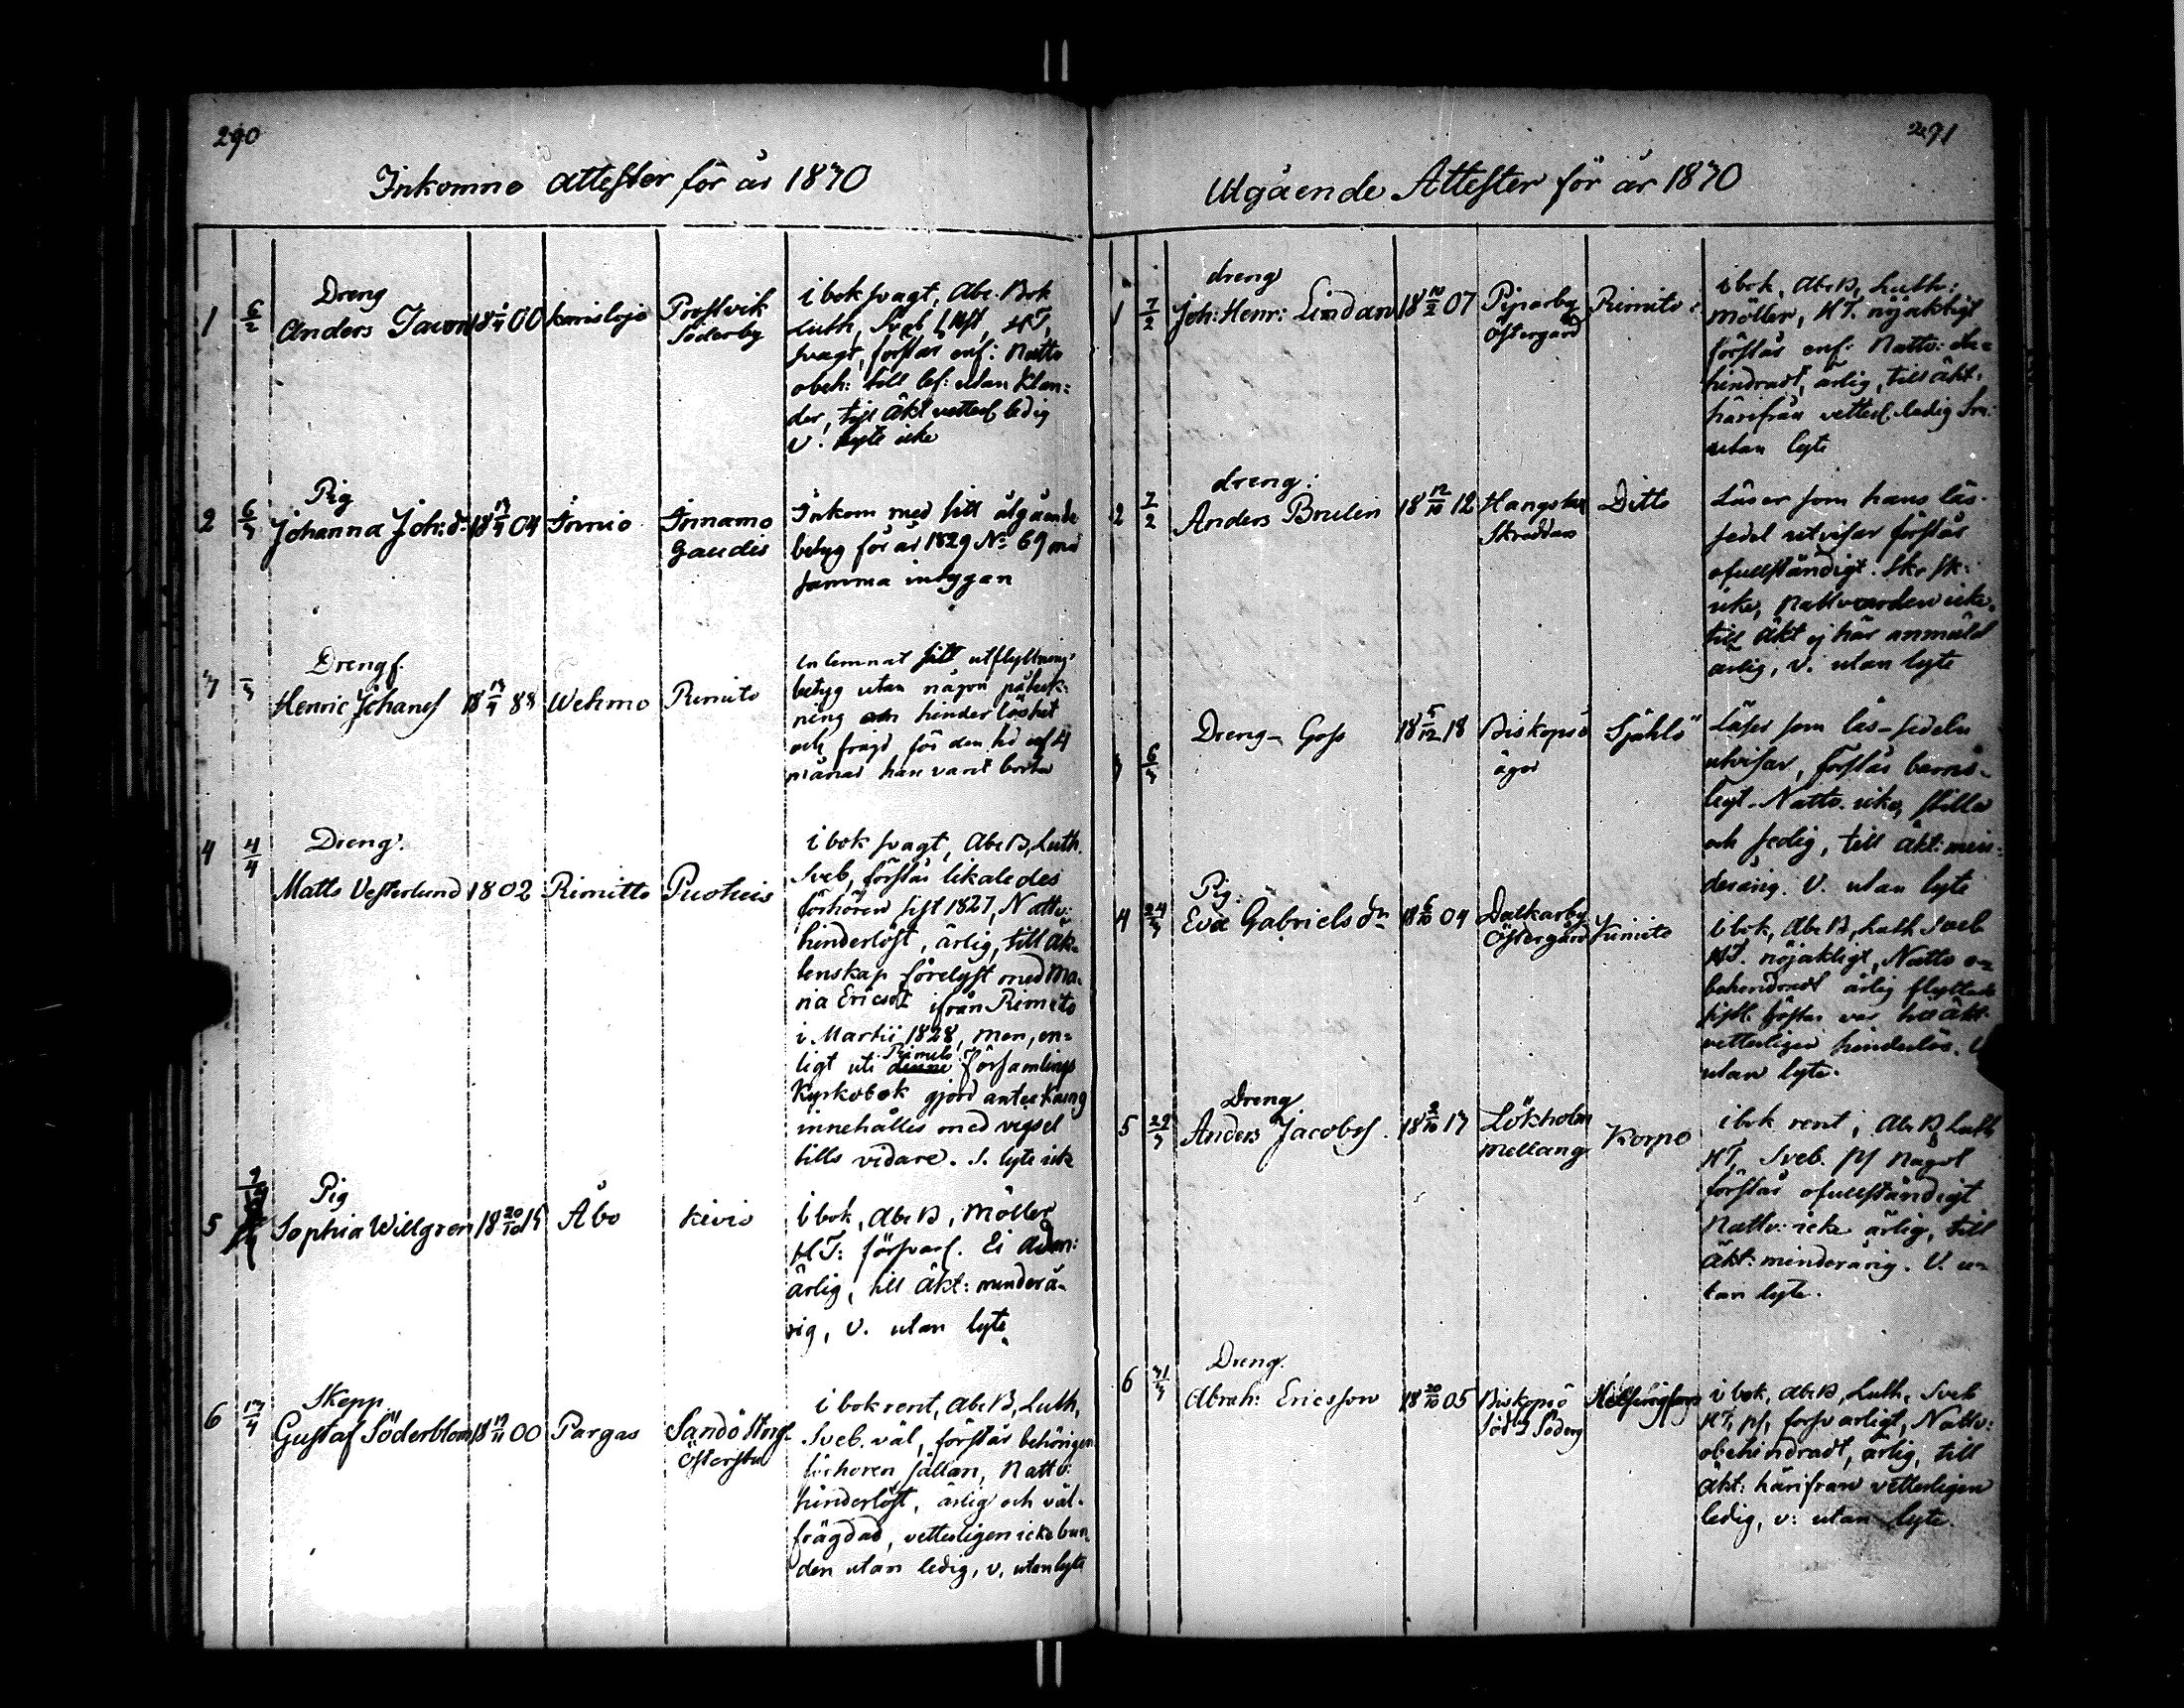 290
Inkomne attester för år 1830
1 6/2 Dreng
Anders Iacon 18 4/4 00 Karislojo Prostvik
Söderby
i bok svagt, Abc. Bok
Luth, Sveb, HT,
svagt, förstår enf: Nattv
obeh: till lef: utan klan:
der, till äkt vetterl ledig
V. lyte icke
2 6/3 Pig
Johanna Joh:dr 1804
Gaudis
Inkom med sitt utgående
betyg för år 1829 No 69 med
samma intygan
3 Drengs.
Henric Johans Wehmo Rimito
In lemnat sitt utflyttnings
betyg utan någon påteck-
ning om hinderlöshet
och frägd för den tid af 4
månad han varit borta
4 4/4 Dreng.
Matts Vesterlund 1802 Rimitto
i bok svagt, Abc B, Luth.
Sveb, förstår likaledes
förhören sist 1827, Nattv:
hinderlöst, ärlig, till äk-
tenskap förelyst med Ma-
ria Ericsdr ifrån Rimito
i Martii 1828, men, en-
ligt uti Rimito församlings
Kyrkobok gjord anteckning
innehålles med vigsel
tills vidare. S. lyte icke
5 Pig
Sophia Willgren 18 20/10 Åbo Kivio
i bok, Abc B, Möller
HT: försvarl. Ei Adm:
ärlig, till äkt: minderå-
rig, V. utan lyte
6 Skepp.
Gustaf Söderblom 1800 Pargas Sandö Storg
i bok rent, Abc B, Luth,
Sveb. väl, förstår behörigen
förhören sällan, Nattv:
hinderlöst, ärlig och väl-
frägdad, vetterligen icke bun-
den utan ledig, v. utan lyte
291
Utgående Attester för år 1830
1 7/2 dreng
Joh: Henr: Lindan 18 10/2 07 Piparby
Östergård Rimito
i bok, Abc B, Luth:
Möller, HT. nöjaktigt
förstår enf: Nattv: obe-
hindradt, ärlig, till äkt.
härifrån vetterl. ledig
utan lyte
2 7/2 dreng:
Anders Brulin 18 12/10 12 Ditto
Läser som hans läs-
sedel utvisar förstår
ofullständigt.
icke, Nattvarden icke,
till äkt ej här anmäld
ärlig, V. utan lyte
3 6/3 Dreng-Goss 18 5/12 18 Biskopsö
ägor Själö
Läser som läs-sedeln
utvisar, förstår barns-
ligt. Nattv. icke, stilla
och sedig, till äkt: min-
derårig. V. utan lyte
4 24/3 Pig:
Eva Gabrielsdr 18 6/10 04 Dalkarby
Östergård Kimito
i bok, Abc B, Luth Sveb
HT. nöjaktigt, Nattv o-
behindradt ärlig flyttade
till äkt
vetterligen hinderlös. V
utan lyte.
5 29/3 Dreng
Anders Jacobss. 18 9/10 13 Lökholm
Mellang Korpo
i bok rent, Abc B Luth
HT, Sveb. ps något
förstår ofullständigt
Nattv: icke ärlig, till
äkt: minderårig. V. u-
tan lyte.
6 31/3 Dreng.
Abrah: Ericsson 18 20/10 05 Biskopsö
Helsingfors
i bok, Abc B, Luth. Sveb
HT, ps, försvarligt, Nattv:
obehindradt, ärlig, till
äkt: härifrån vetterligen
ledig, v: utan lyte.